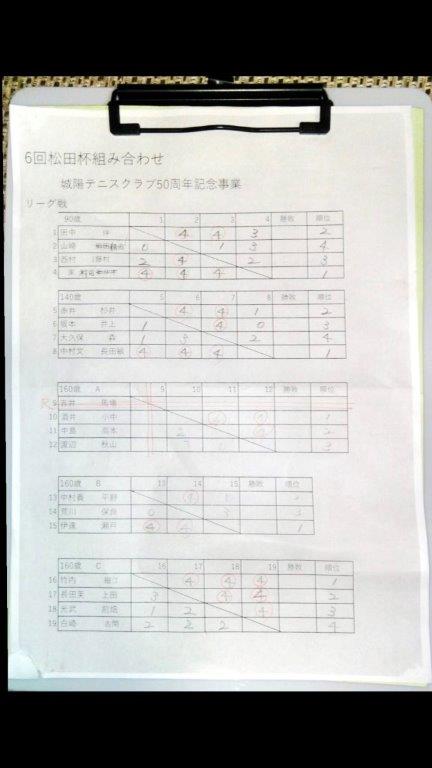 6回松田杯組み合わせ
城陽テニスクラブ50周年記念事業
リーグ戦
90歳 1 2 3 4 勝敗 順位
1 田中 伴 4 4 3 2
2 山崎 0 1 3 4
3 西村 藤村 2 4 2 3
4 東 4 4 4 1
140歳 5 6 7 8 勝敗 順位
5 赤井 杉井 4 4 1 2
6 坂本 井上 1 4 0 3
7 大久保 森 1 3 2 4
8 中村文 長田敏 4 4 4 1
160歳 A 9 10 11 12 勝敗 順位
9 吉井 馬場
10 酒井 小中 1
11 中島 高本 2 2
12 渡辺 秋山 3
160歳 B 13 14 15 勝敗 順位
13 中村義 平野 4 2
14 荒川 保良 0 3 3
15 伊達 瀬戸 4 4 1
160歳 C 16 17 18 19 勝敗 順位
16 竹内 4 4 4 1
17 長田実 上田 3 4 4 2
18 光武 前畑 1 2 4 3
19 白崎 古閑 2 2 2 4